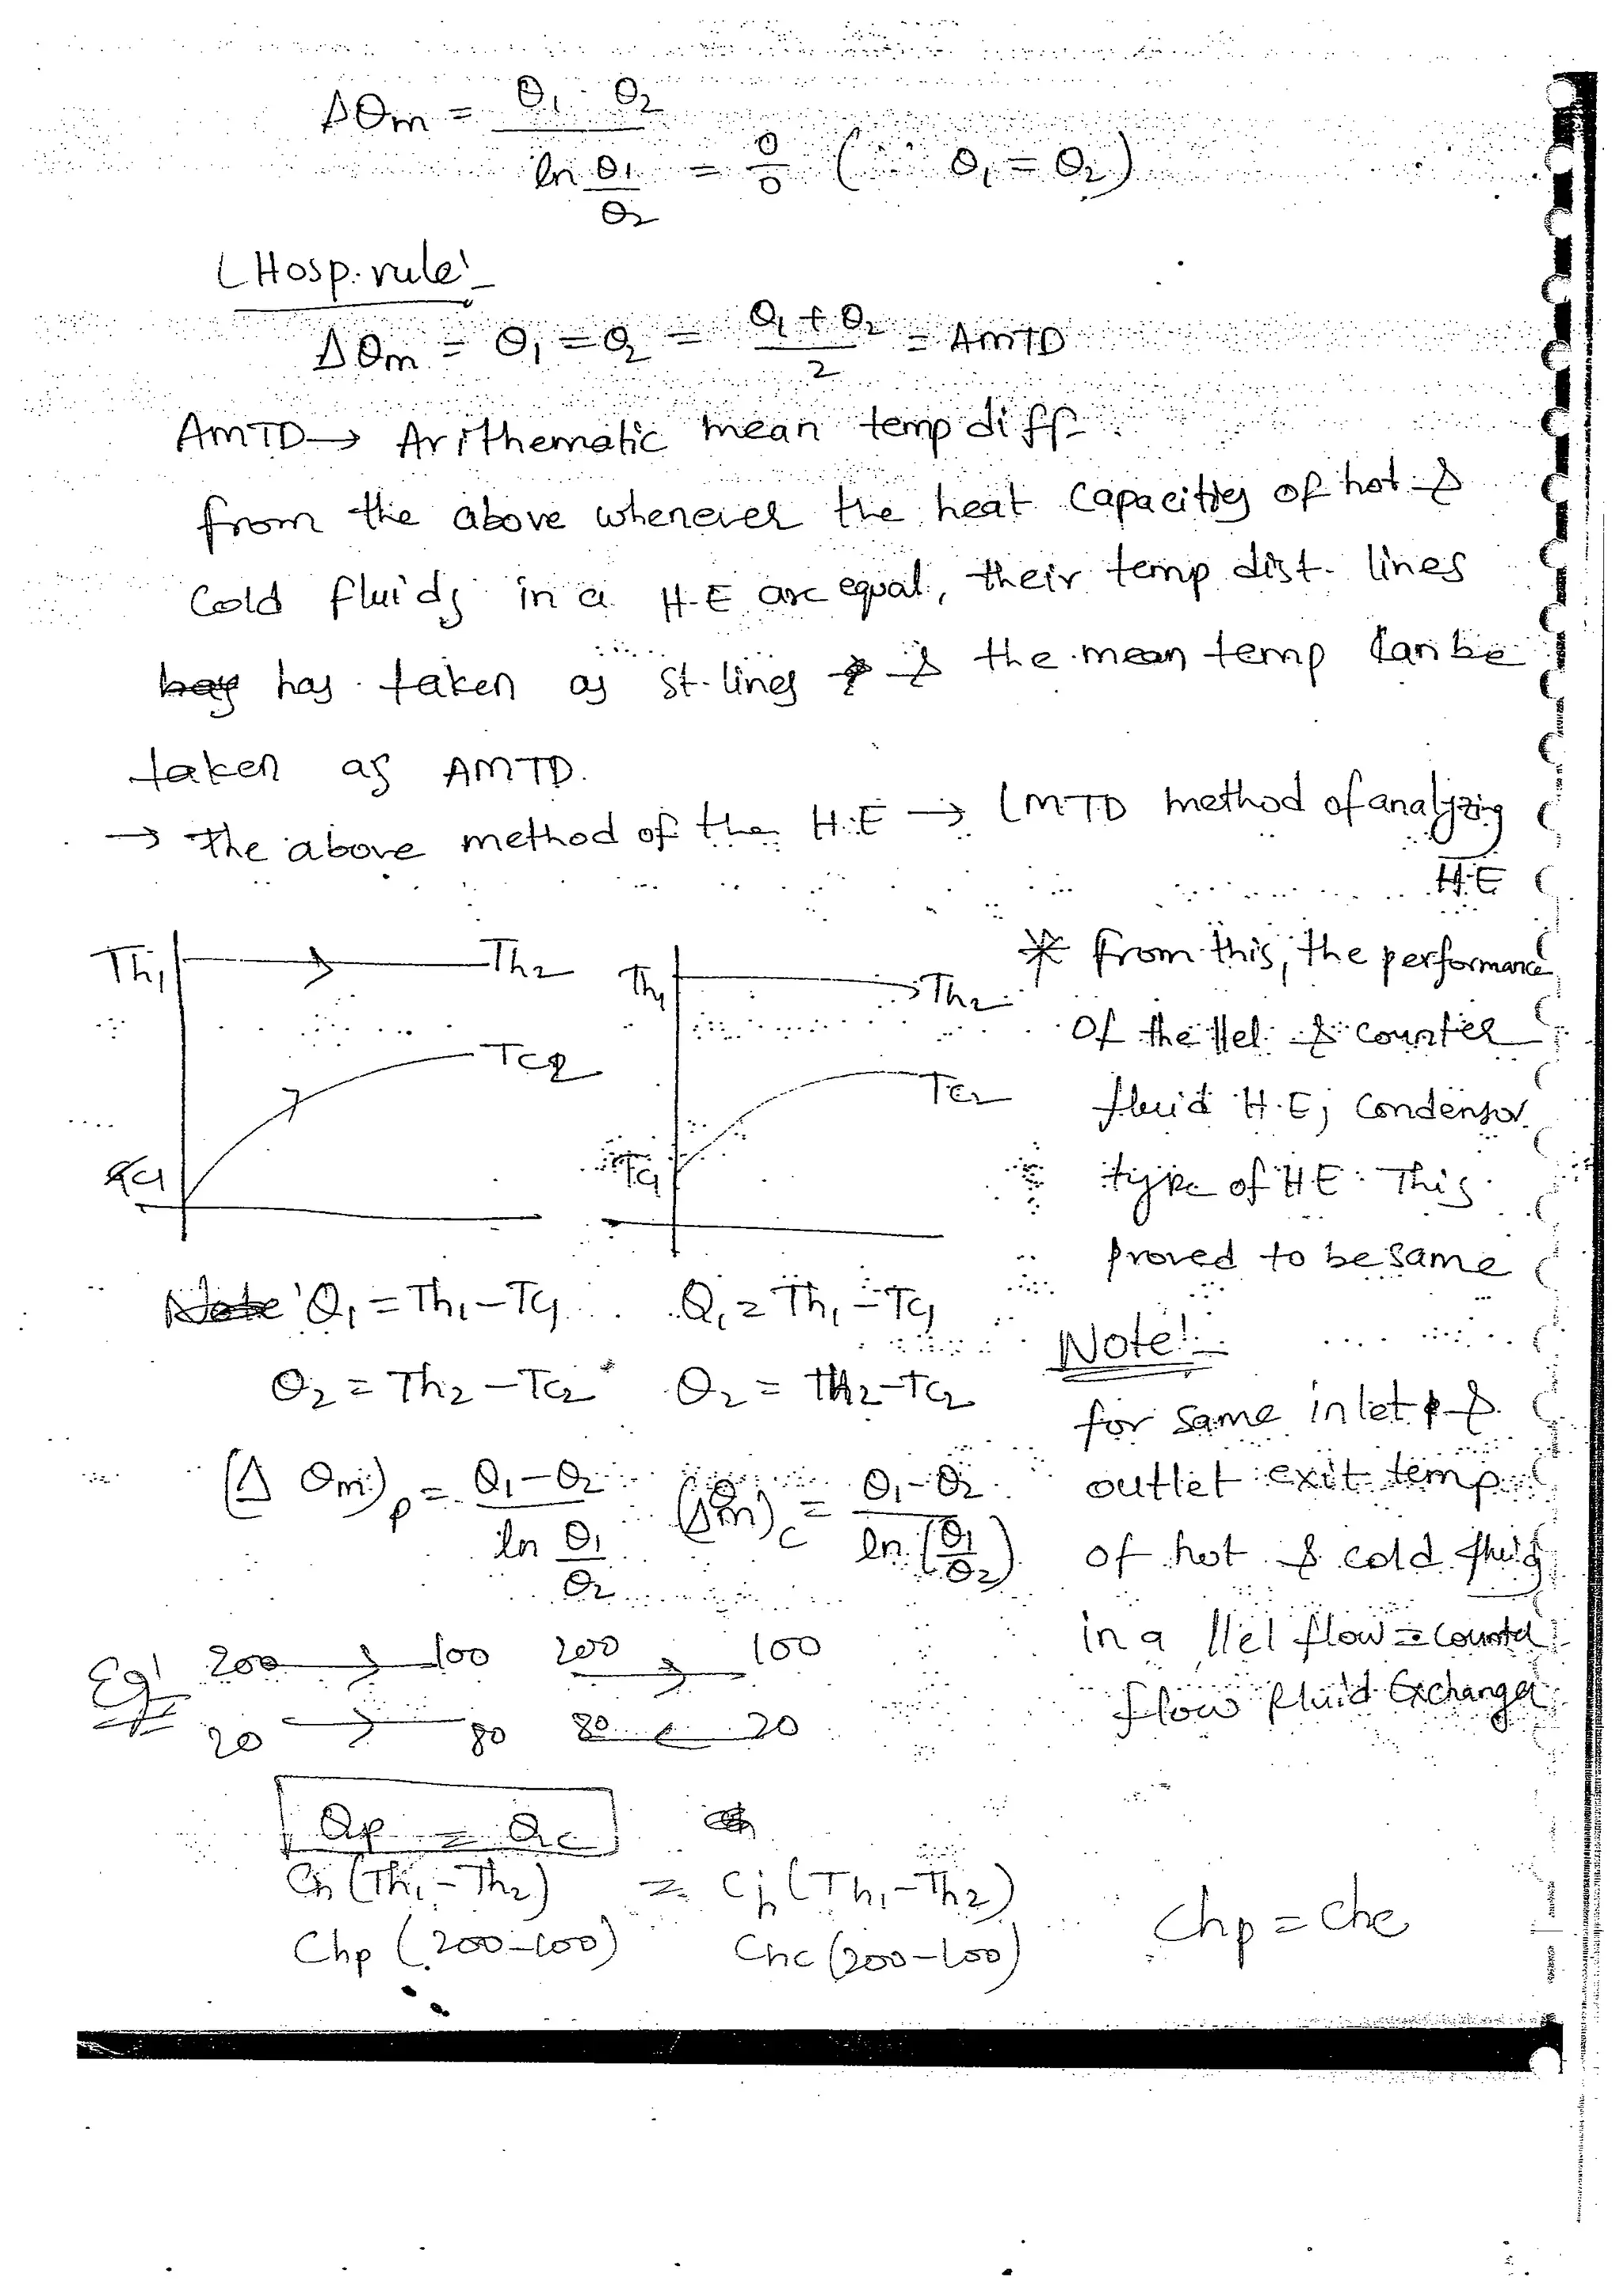 Δθm = θ1 - θ2 / ln θ1/θ2 = 0/0 (∵ θ1 = θ2)
LHosp. rule:-
Δθm = θ1 = θ2 = θ1 + θ2 / 2 = AMTD
AMTD → Arithematic mean temp diff.
from the above whenever the heat capacities of hot &
cold fluids in a H.E are equal, their temp dist. lines
has taken as st. lines & the mean temp can be
taken as AMTD.
→ The above method of the H.E → LMTD method of analyzing
H.E
Th1 Th2
Tc1 Tc2
Th1 Th2
Tc1 Tc2
* from this, the performance
of the llel & counter
fluid H.E; Condensor
type of HE. This
proved to be same
Note θ1 = Th1 - Tc1
θ2 = Th2 - Tc2
(Δ θm)p = θ1 - θ2 / ln θ1/θ2
θ1 = Th1 - Tc1
θ2 = Th2 - Tc2
(Δθm)c = θ1 - θ2 / ln (θ1/θ2)
Note:-
for same inlet &
outlet exit temp
of hot & cold fluid
in a llel flow = counter
flow fluid Exchanger
Eg: 200 → 100 200 → 100
20 → 80 80 ← 20
Qp = Qc
Ch (Th1 - Th2) = Ch (Th1 - Th2)
Chp (200-100) Chc (200-100) Chp = Chc